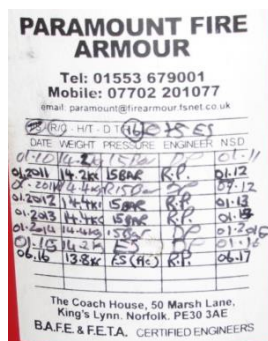 PARAMOUNT FIRE
ARMOUR
Tel: 01553 679001
Mobile: 07702 201077
email: paramount@firearmour.fsnet.co.uk
(R/C) - H/T - D T
DATE WEIGHT PRESSURE ENGINEER NSD
01.10 14.2kg 15Bar 01.11
01.2011 14.2kg 15BAR R.P. 01.12
01.2012 14.4kg 15BAR R.P. 01.13
01.2013 14.4kg 15BAR R.P.
01.2014 14.4kg 15Bar
01.15 14.2k ES 01.16
06.16 13.8K ES (A/C) R.P. 06.17
The Coach House, 50 Marsh Lane,
King's Lynn. Norfolk. PE30 3AE
B.A.F.E. & F.E.T.A. CERTIFIED ENGINEERS